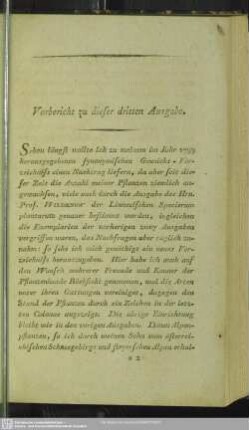 Vorbericht zu dieser dritten Ausgabe.
Schon längst wollte ich zu meinem im Jahr 1799
herausgegebenen synonymischen Gewächs-Ver-
zeichnisse einen Nachtrag liefern, da aber seit die-
ser Zeit die Anzahl meiner Pflanzen ziemlich an-
gewachsen, viele auch durch die Ausgabe des Hrn.
Prof. WILDENOW der Linneischen Specierum
plantarum genauer bestimmt worden, ingleichen
die Exemplarien der vorherigen zwey Ausgaben
vergriffen waren, die Nachfragen aber täglich zu-
nahm: so sehe ich mich genöthigt ein neues Ver-
zeichniss herauszugeben. Hier habe ich auch auf
den Wunsch mehrerer Freunde und Kenner der
Pflanzenkunde Rücksicht genommen, und die Arten
unter ihren Gattungen vereiniget, dagegen den
Stand der Pflanzen durch ein Zeichen in der letz-
ten Columne angezeigt. Die übrige Einrichtung
bleibt wie in den vorigen Ausgaben. Denen Alpen-
pflanzen, so ich durch meinen Sohn vom österrei-
chischen Schneegebirge und steyerschen Alpen erhal-